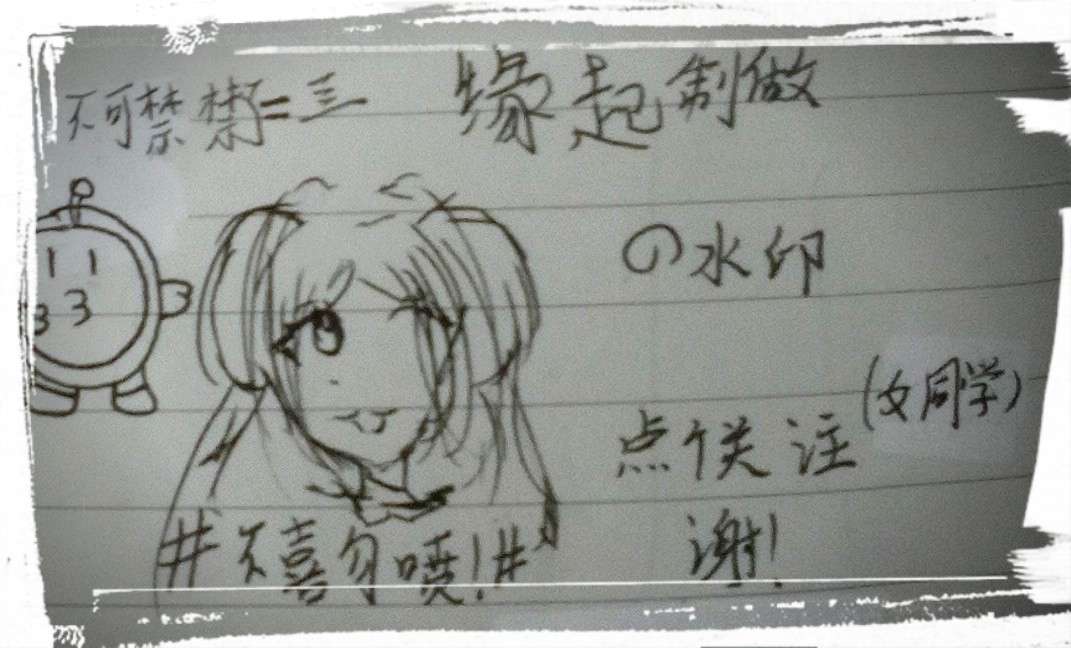 不可禁禁=三
缘起制做
の水印
点个关注(女同学)
谢!
#不喜勿喷!#